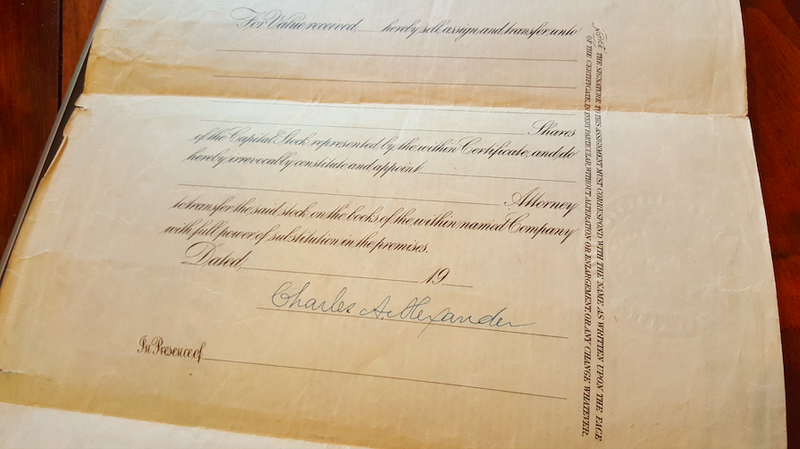 For Value received, hereby sell, assign and transfer unto
Shares
of the Capital Stock represented by the within Certificate, and do
hereby irrevocably constitute and appoint
Attorney
to transfer the said stock on the books of the within named Company
with full power of substitution in the premises.
Dated, 19
Charles A. Alexander
In Presence of
Notice. THE SIGNATURE TO THIS ASSIGNMENT MUST CORRESPOND WITH THE NAME AS WRITTEN UPON THE FACE
OF THE CERTIFICATE, IN EVERY PARTICULAR, WITHOUT ALTERATION OR ENLARGEMENT OR ANY CHANGE WHATEVER.